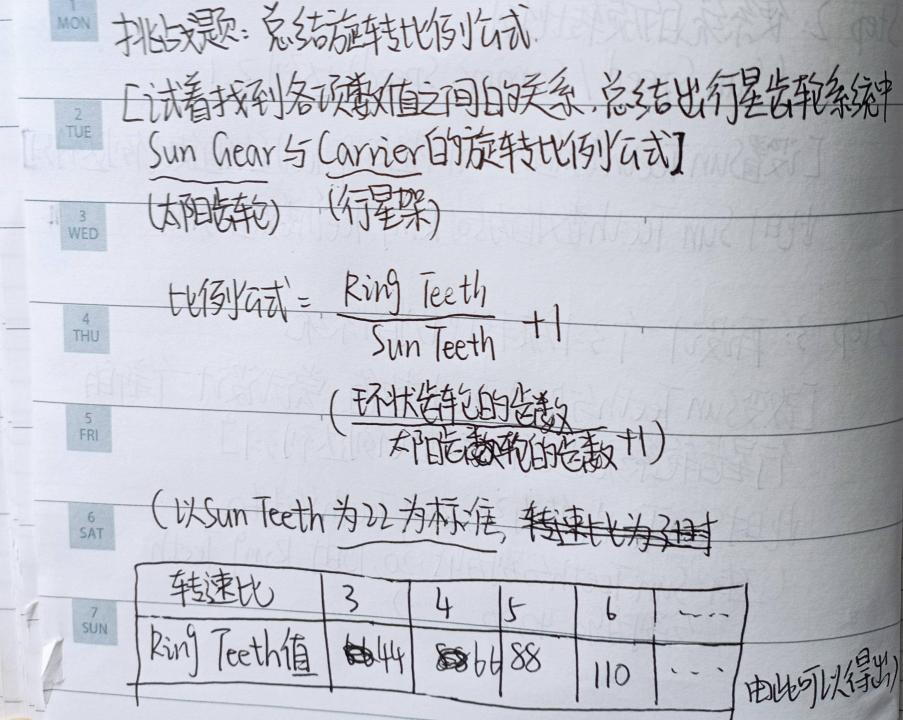 1
MON
挑战题：总结旋转比例公式.
[试着找到各项数值之间的关系，总结出行星齿轮系统中
2
TUE
Sun Gear与Carrier的旋转比例公式]
(太阳齿轮) (行星架)
3
WED
比例公式 = Ring Teeth / Sun Teeth +1
4
THU
(环状齿轮的齿数 / 太阳齿轮的齿数 +1)
5
FRI
(以Sun Teeth为22为标准,
6
SAT
转速比 3 4 5 6 ……
7
SUN
Ring Teeth值 44 66 88 110 ...
由此可以得出)